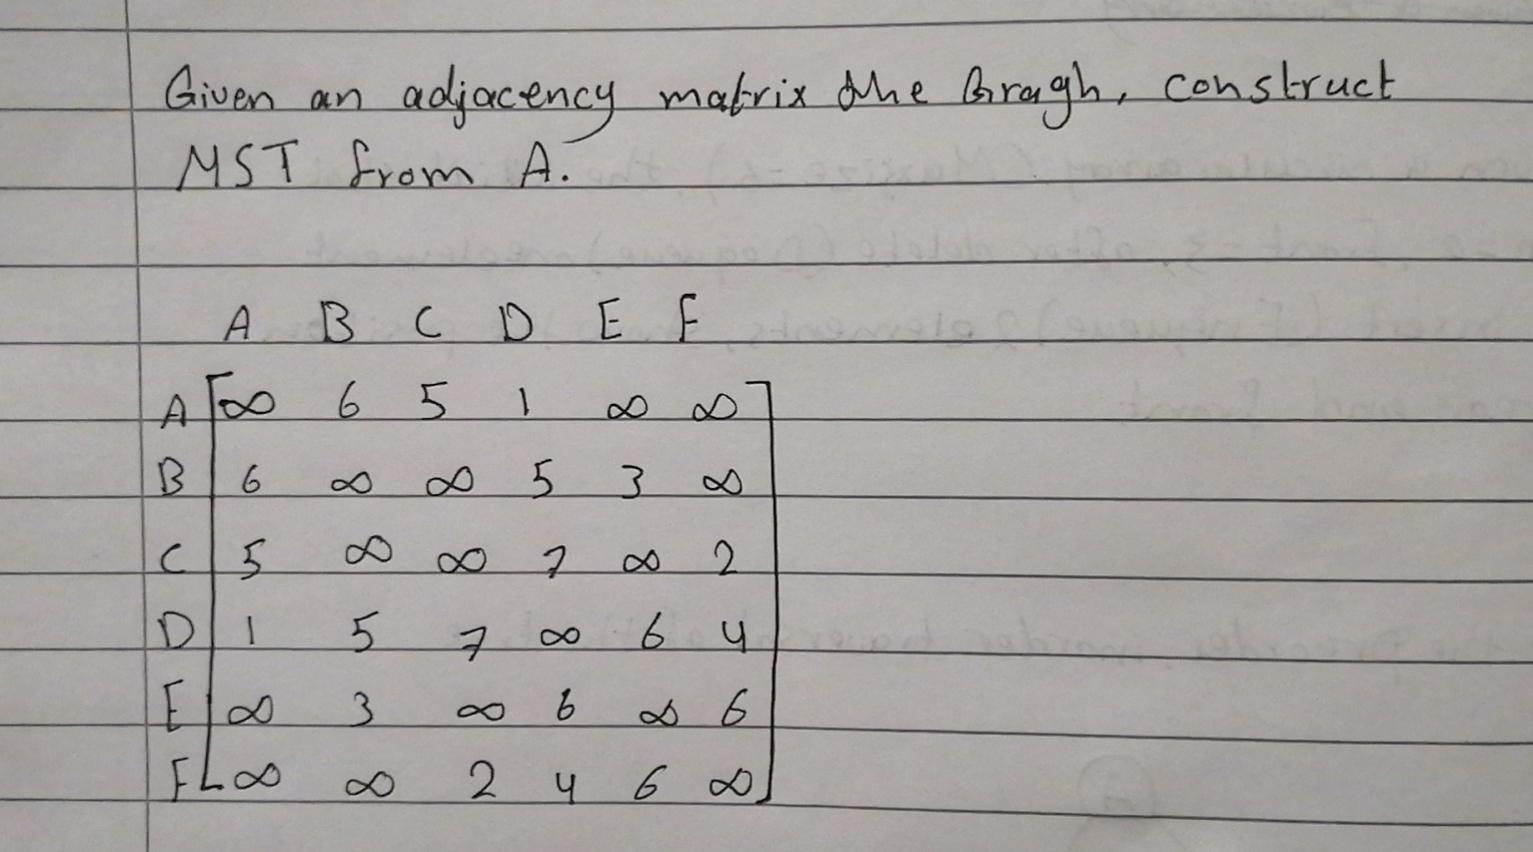 Given an adjacency matrix the Gragh, construct
MST from A.
A B C D E F
A ∞ 6 5 1 ∞ ∞
B 6 ∞ ∞ 5 3 ∞
C 5 ∞ ∞ 7 ∞ 2
D 1 5 7 ∞ 6 4
E ∞ 3 ∞ 6 ∞ 6
F ∞ ∞ 2 4 6 ∞